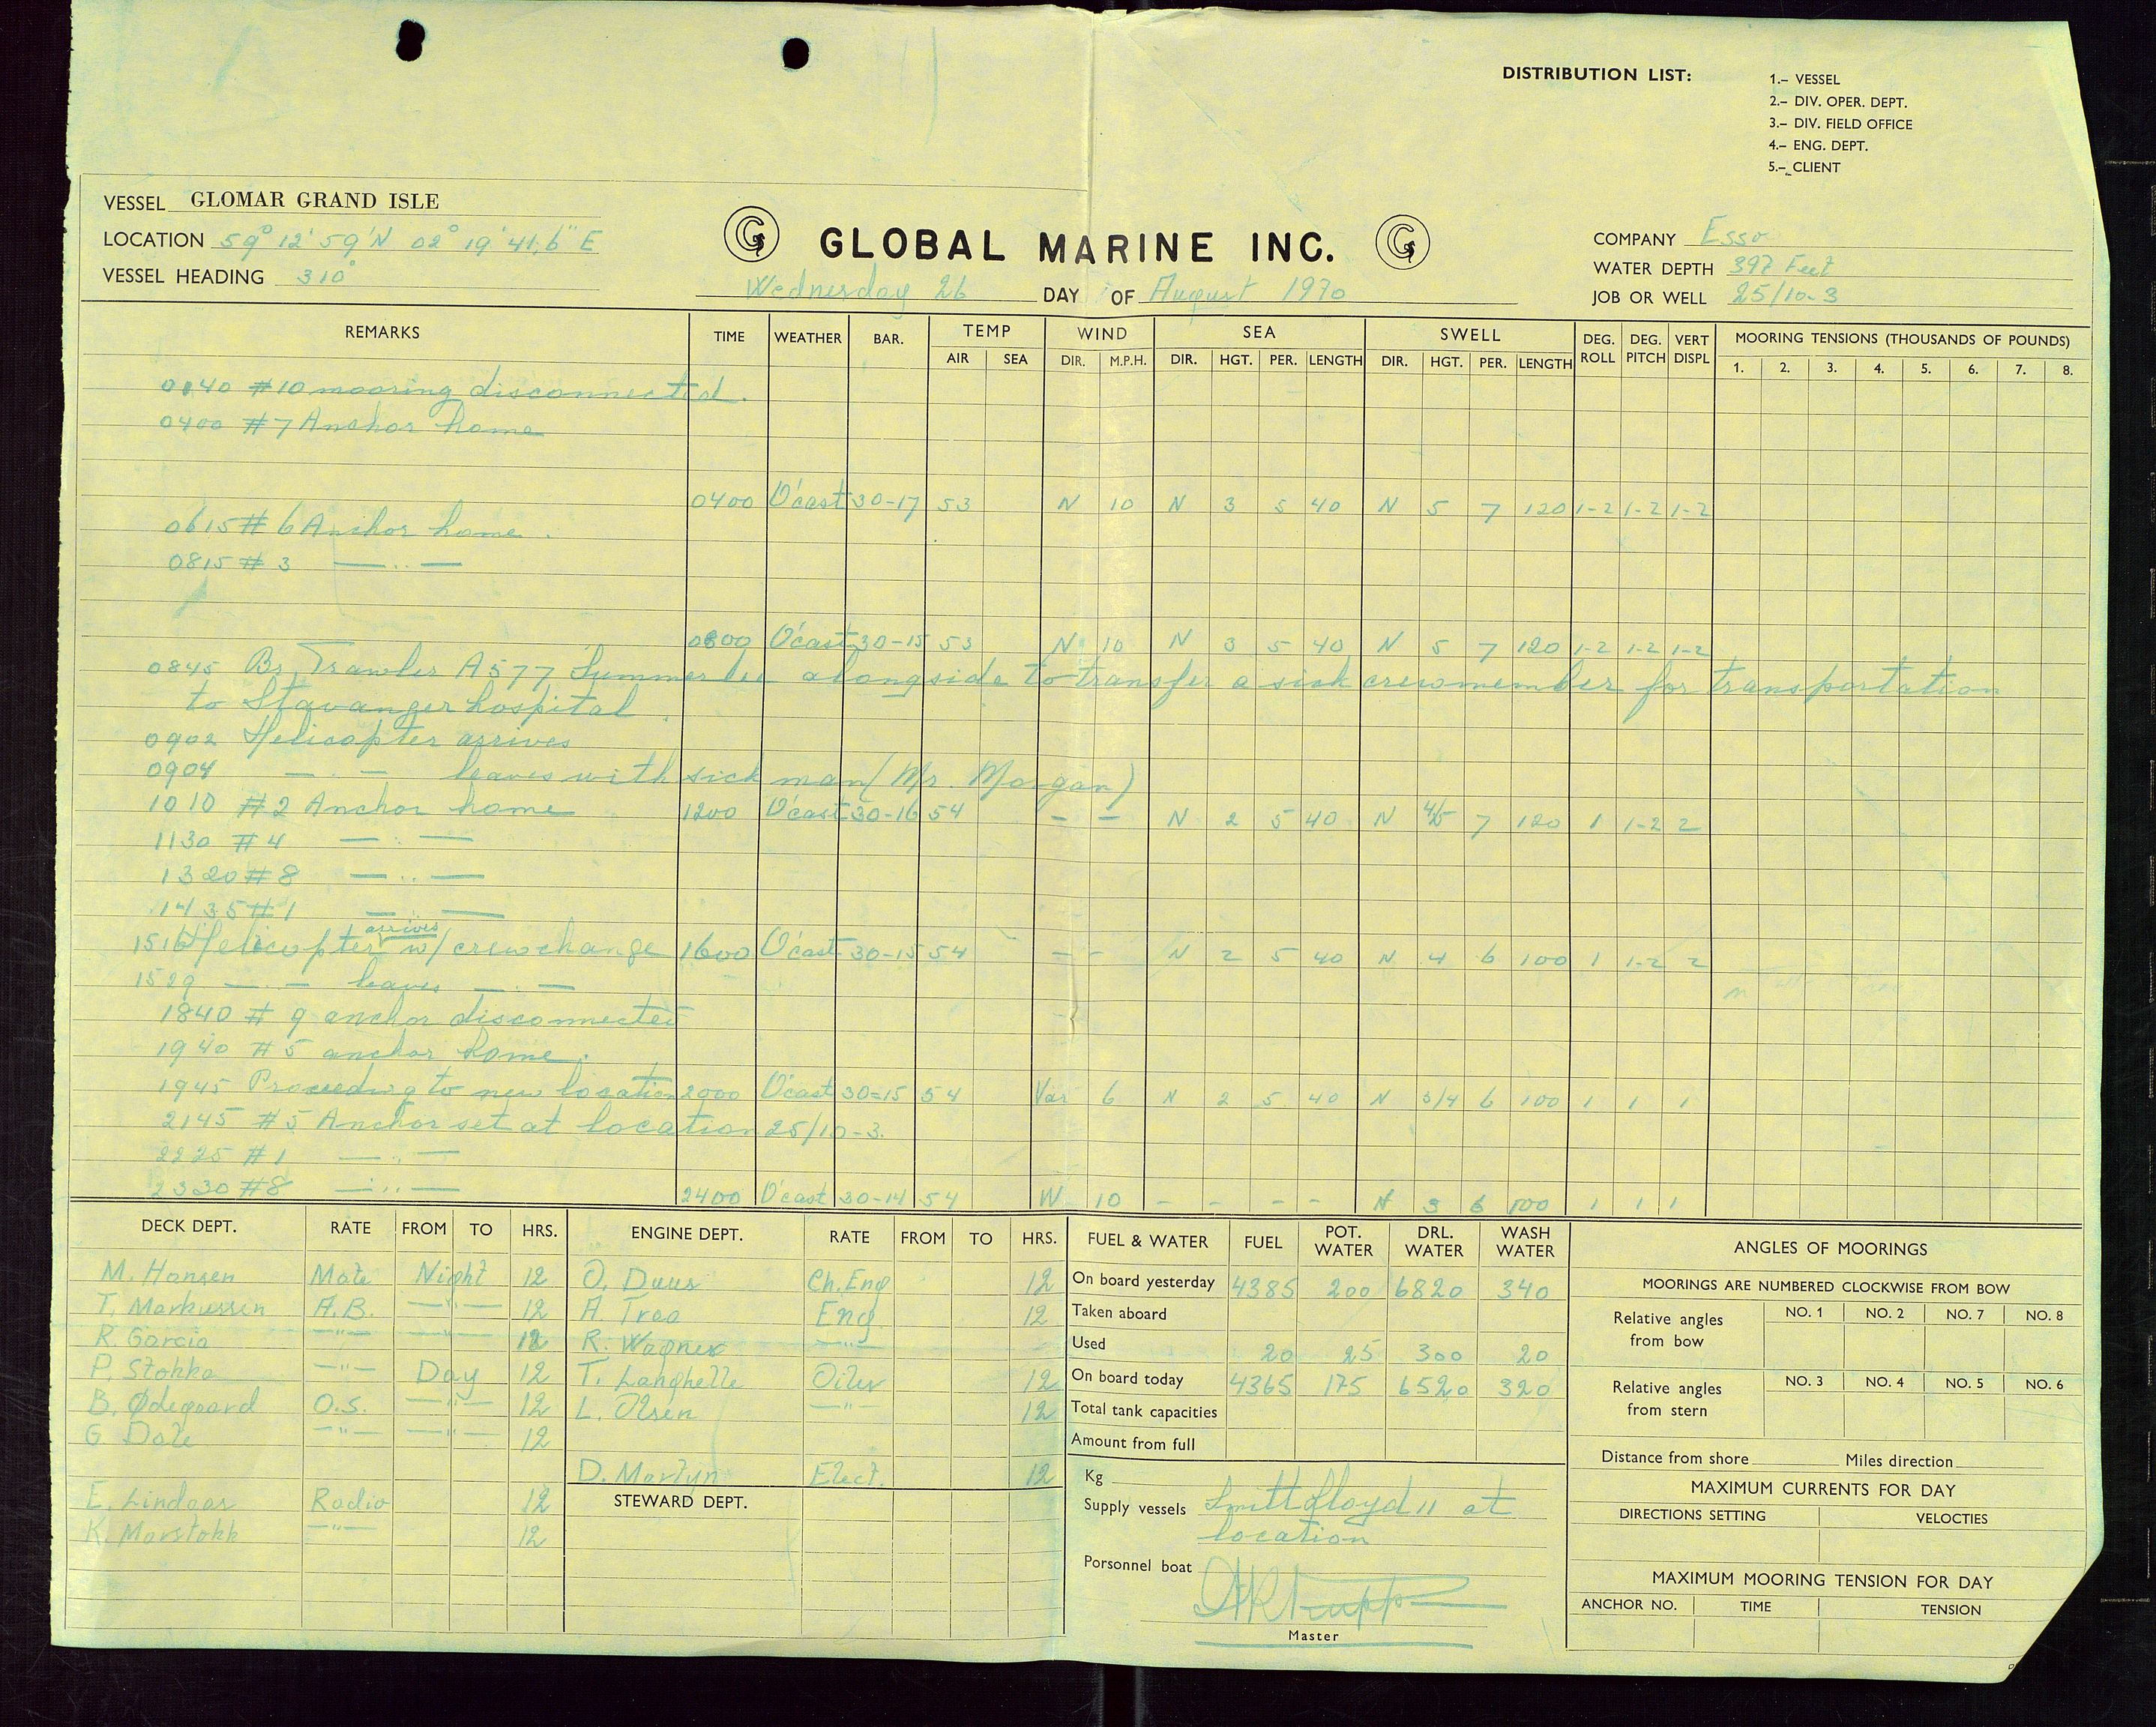 DISTRIBUTION LIST:
1.- VESSEL
2.- DIV. OPER. DEPT.
3.- DIV. FIELD OFFICE
4.- ENG. DEPT.
5.- CLIENT
VESSEL GLOMAR GRAND ISLE
LOCATION 59° 12' 59'N 02° 19' 41,6" E
VESSEL HEADING 310°
GLOBAL MARINE INC.
Wednesday 26 DAY OF August 1970
COMPANY Esso
WATER DEPTH 397 Feet
JOB OR WELL 25/10-3
REMARKS TIME WEATHER BAR. TEMP WIND SEA SWELL DEG. ROLL DEG. PITCH VERT DISPL MOORING TENSIONS (THOUSANDS OF POUNDS)
AIR SEA DIR. M.P.H. DIR. HGT. PER. LENGTH DIR. HGT. PER. LENGTH 1. 2. 3. 4. 5. 6. 7. 8.
0140 #10 mooring disconnected.
0400 #7 Anchor home
0400 O'cast 30-17 53 N 10 N 3 5 40 N 5 7 120 1-2 1-2 1-2
0615 #6 Anchor home.
0815 #3 — .. —
0800 O'cast 30-15 53 N 10 N 3 5 40 N 5 7 120 1-2 1-2 1-2
0845 Br. Trawler A577 Summer lee alongside to transfer a sick crewmember for transportation
to Stavanger hospital.
0902 Helicopter arrives
0904 — . — leaves with sick man (Mr. Morgan)
1010 #2 Anchor home 1200 O'cast 30-16 54 - - N 2 5 40 N 4/5 7 120 1 1-2 2
1130 #4 — . —
1320 #8 — .. —
1435 #1 — .. —
1516 Helicopter arrives w/ crewchange 1600 O'cast 30-15 54 - - N 2 5 40 N 4 6 100 1 1-2 2
1529 — . — leaves — . —
1840 # 9 anchor disconnected
1940 #5 anchor home.
1945 Proceeding to new location 2000 O'cast 30=15 54 Var 6 N 2 5 40 N 3/4 6 100 1 1 1
2145 #5 Anchor set at location 25/10-3.
2225 #1 — .. —
2330 #8 — .. — 2400 O'cast 30-14 54 W 10 - - - - N 3 6 100 1 1 1
DECK DEPT. RATE FROM TO HRS.
M. Hansen Mate Night 12
T. Markussen A.B. —"— 12
R. Garcia —"— —"— 12
P. Stokka —"— Day 12
B. Ødegaard O.S. —"— 12
G Dale —"— —"— 12
E. Lindaas Radio 12
K. Marstokk —"— 12
ENGINE DEPT. RATE FROM TO HRS.
O. Duus Ch.Eng 12
A. Traa Eng 12
R. Wagner —"—
T. Langhelle Oiler 12
L. Olsen —"— 12
D. Martyn Elect. 12
STEWARD DEPT.
FUEL & WATER FUEL POT. WATER DRL. WATER WASH WATER
On board yesterday 4385 200 6820 340
Taken aboard
Used 20 25 300 20
On board today 4365 175 6520 320
Total tank capacities
Amount from full
Kg
Supply vessels Smitt Lloyd 11 at
location
Porsonnel boat
Master
ANGLES OF MOORINGS
MOORINGS ARE NUMBERED CLOCKWISE FROM BOW
Relative angles from bow NO. 1 NO. 2 NO. 7 NO. 8
Relative angles from stern NO. 3 NO. 4 NO. 5 NO. 6
Distance from shore Miles direction
MAXIMUM CURRENTS FOR DAY
DIRECTIONS SETTING VELOCTIES
MAXIMUM MOORING TENSION FOR DAY
ANCHOR NO. TIME TENSION